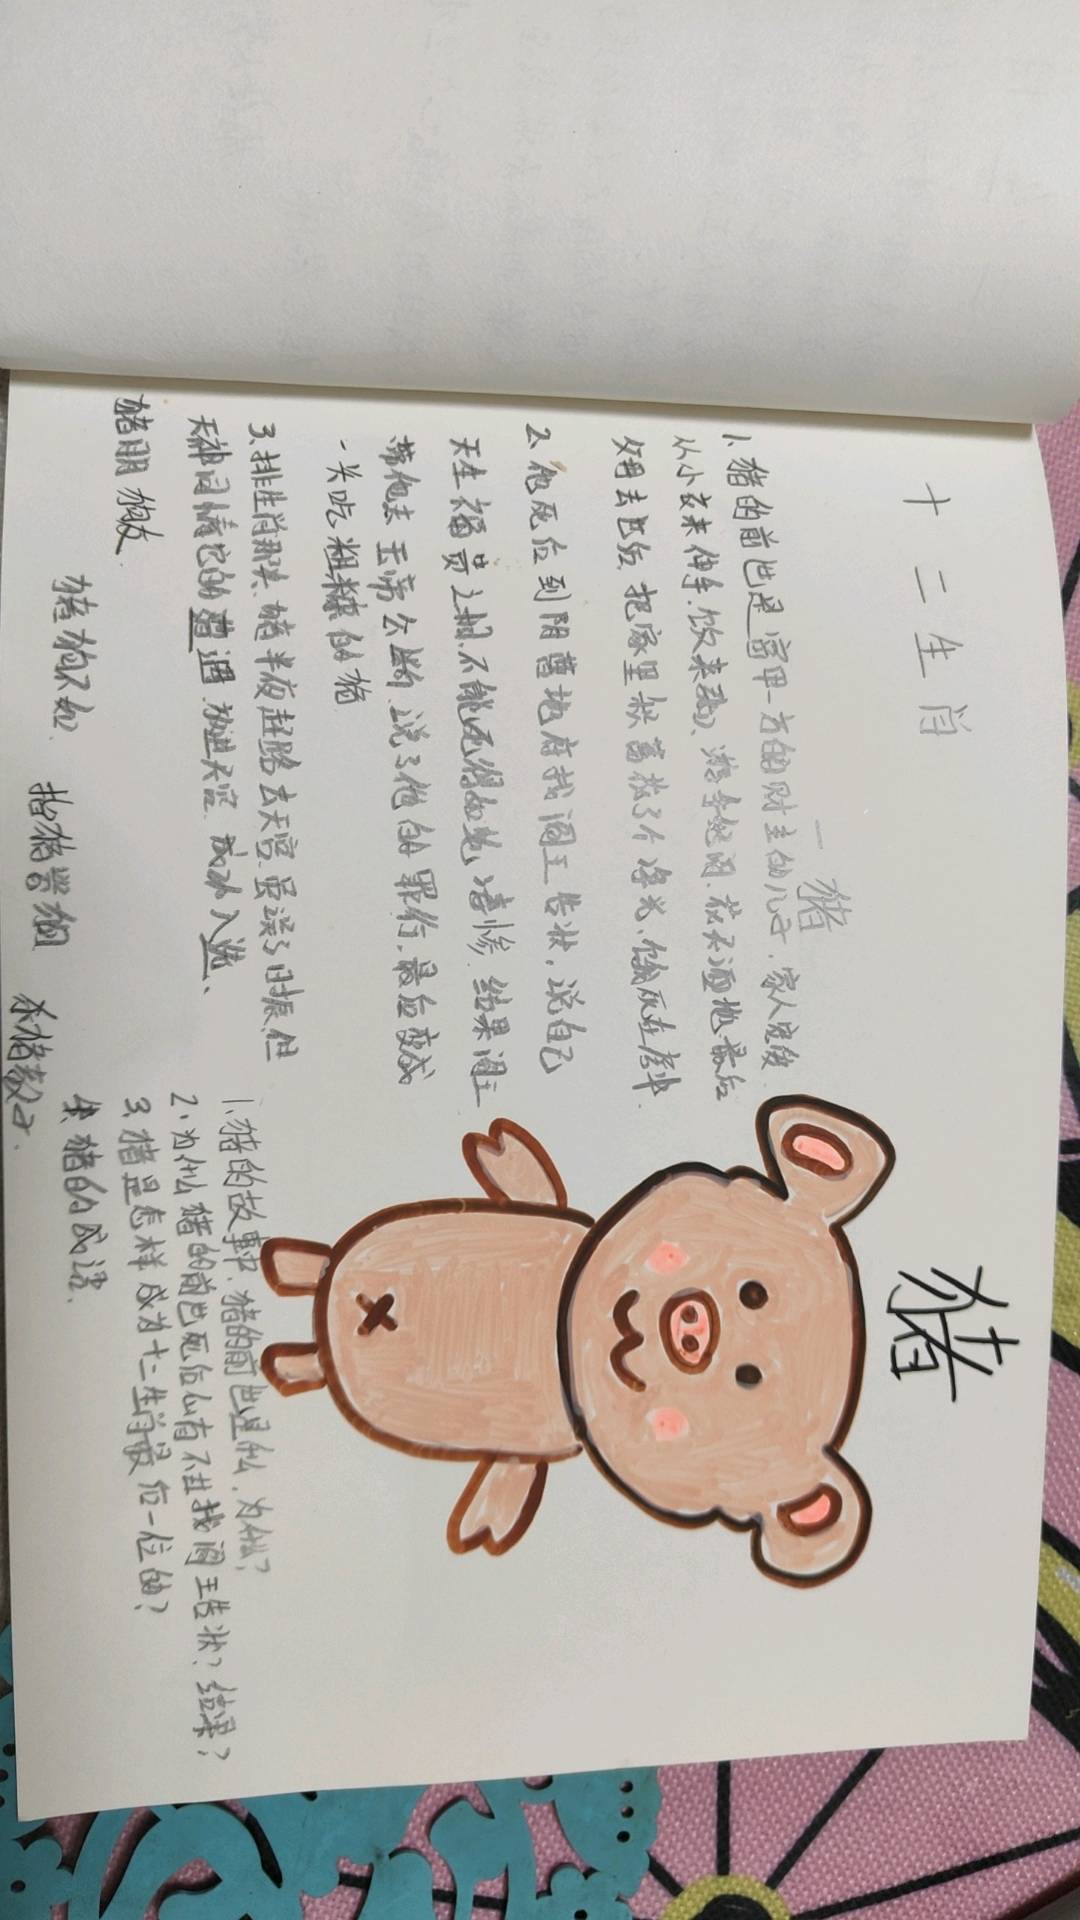 十二生肖
一猪
1、猪的前世是富甲一方的财主的儿子,家人宠溺
从小衣来伸手,饭来张口,游手好闲,花天酒地最后
父母去世后,把家里积蓄败了个净光,饿死在房中
2、他死后到阴曹地府找阎王告状,说自己
天生福贵之相,不能死得如此凄惨,结果阎王
带他去玉帝公断,说了他的罪行,最后变成
一头吃粗糠的猪
3、排生肖那天,猪半夜赶路去天宫,虽误了时辰,但
天神同情它的遭遇,放进天宫,成功入选、
猪朋狗友
猪狗不如
指猪骂狗
杀猪教子.
猪
1、猪的故事中,猪的前世是什么,为什么?
2、为什么猪的前世死后
找阎王告状?结果?
3、猪是怎样成为十二生肖最后一位的?
猪的成语.